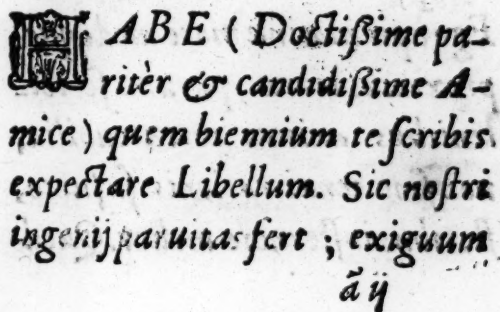 HABE (Doctißime pa-
ritèr & candidißime A-
mice) quem biennium te ſcribis
expectare Libellum. Sic noſtri
ingenij paruitas fert; exiguum
ã ij